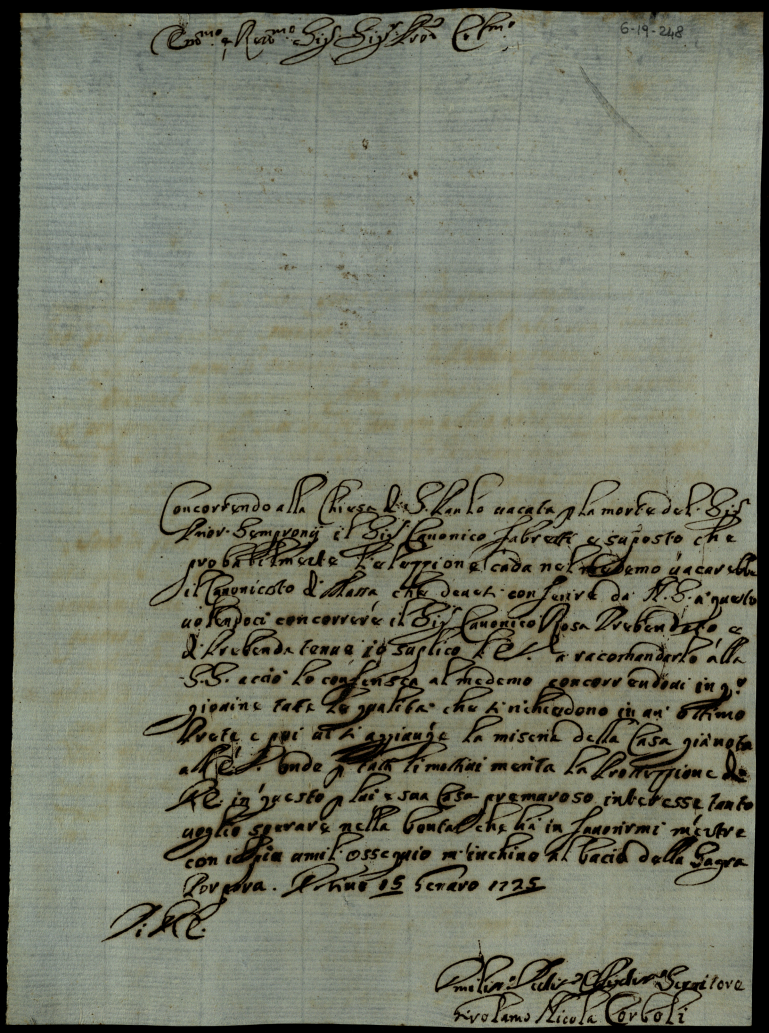 6-19-248
Em.mo e Rev.mo Sig.r Sig.r Pron Col.mo
Concorrendo alla Chiesa di S. Paulo uacata p la morte del Sig.r
Prior Sempronij il Sig.r Canonico Fabretti e suposto che
probabilmente l'elezzione cada nel medemo uacarebbe
il Canonicato di Massa che deuesi conferire da N. S. a questo
uolendoci concorrere il Sig.r Canonico Rosa Prebendato e
di Prebenda tenue io suplico l'E. V. a racomandarlo alla
S. S. acciò lo conferisca al medemo concorrendoui in q.to
giouine tutte le qualità che si richiedono in un ottimo
Prete e poi ui si aggiunge la miseria della Casa già nota
all'E. V. onde p tutti li motiui merita la Protezzione de
V. E. in questo p lui e sua Casa premuroso interesse tanto
uoglio sperare nella bontà che ha in fauorirmi mentre
con il più umil ossequio m'inchino al bacio della Sagra
Porpora. Urbino 15 Genaro 1725
Di V. E.
Umiliss.o Deuotiss.o Obligatiss.o Seruitore
Girolamo Nicola Corboli